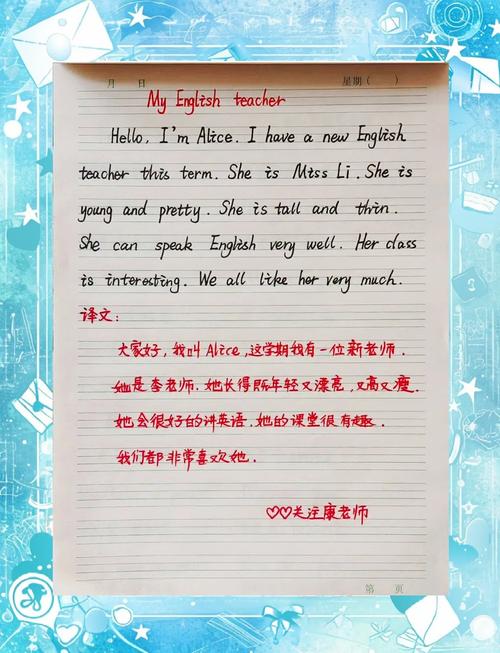 月 日 星期( )
My English teacher
Hello, I'm Alice. I have a new English
teacher this term. She is Miss Li. She is
young and pretty. She is tall and thin.
She can speak English very well. Her class
is interesting. We all like her very much.
译文:
大家好,我叫Alice,这学期我有一位新老师.
她是李老师.她长得既年轻又漂亮,又高又瘦.
她会很好的讲英语.她的课堂很有趣.
我们都非常喜欢她.
♡♡关注康老师
第 页